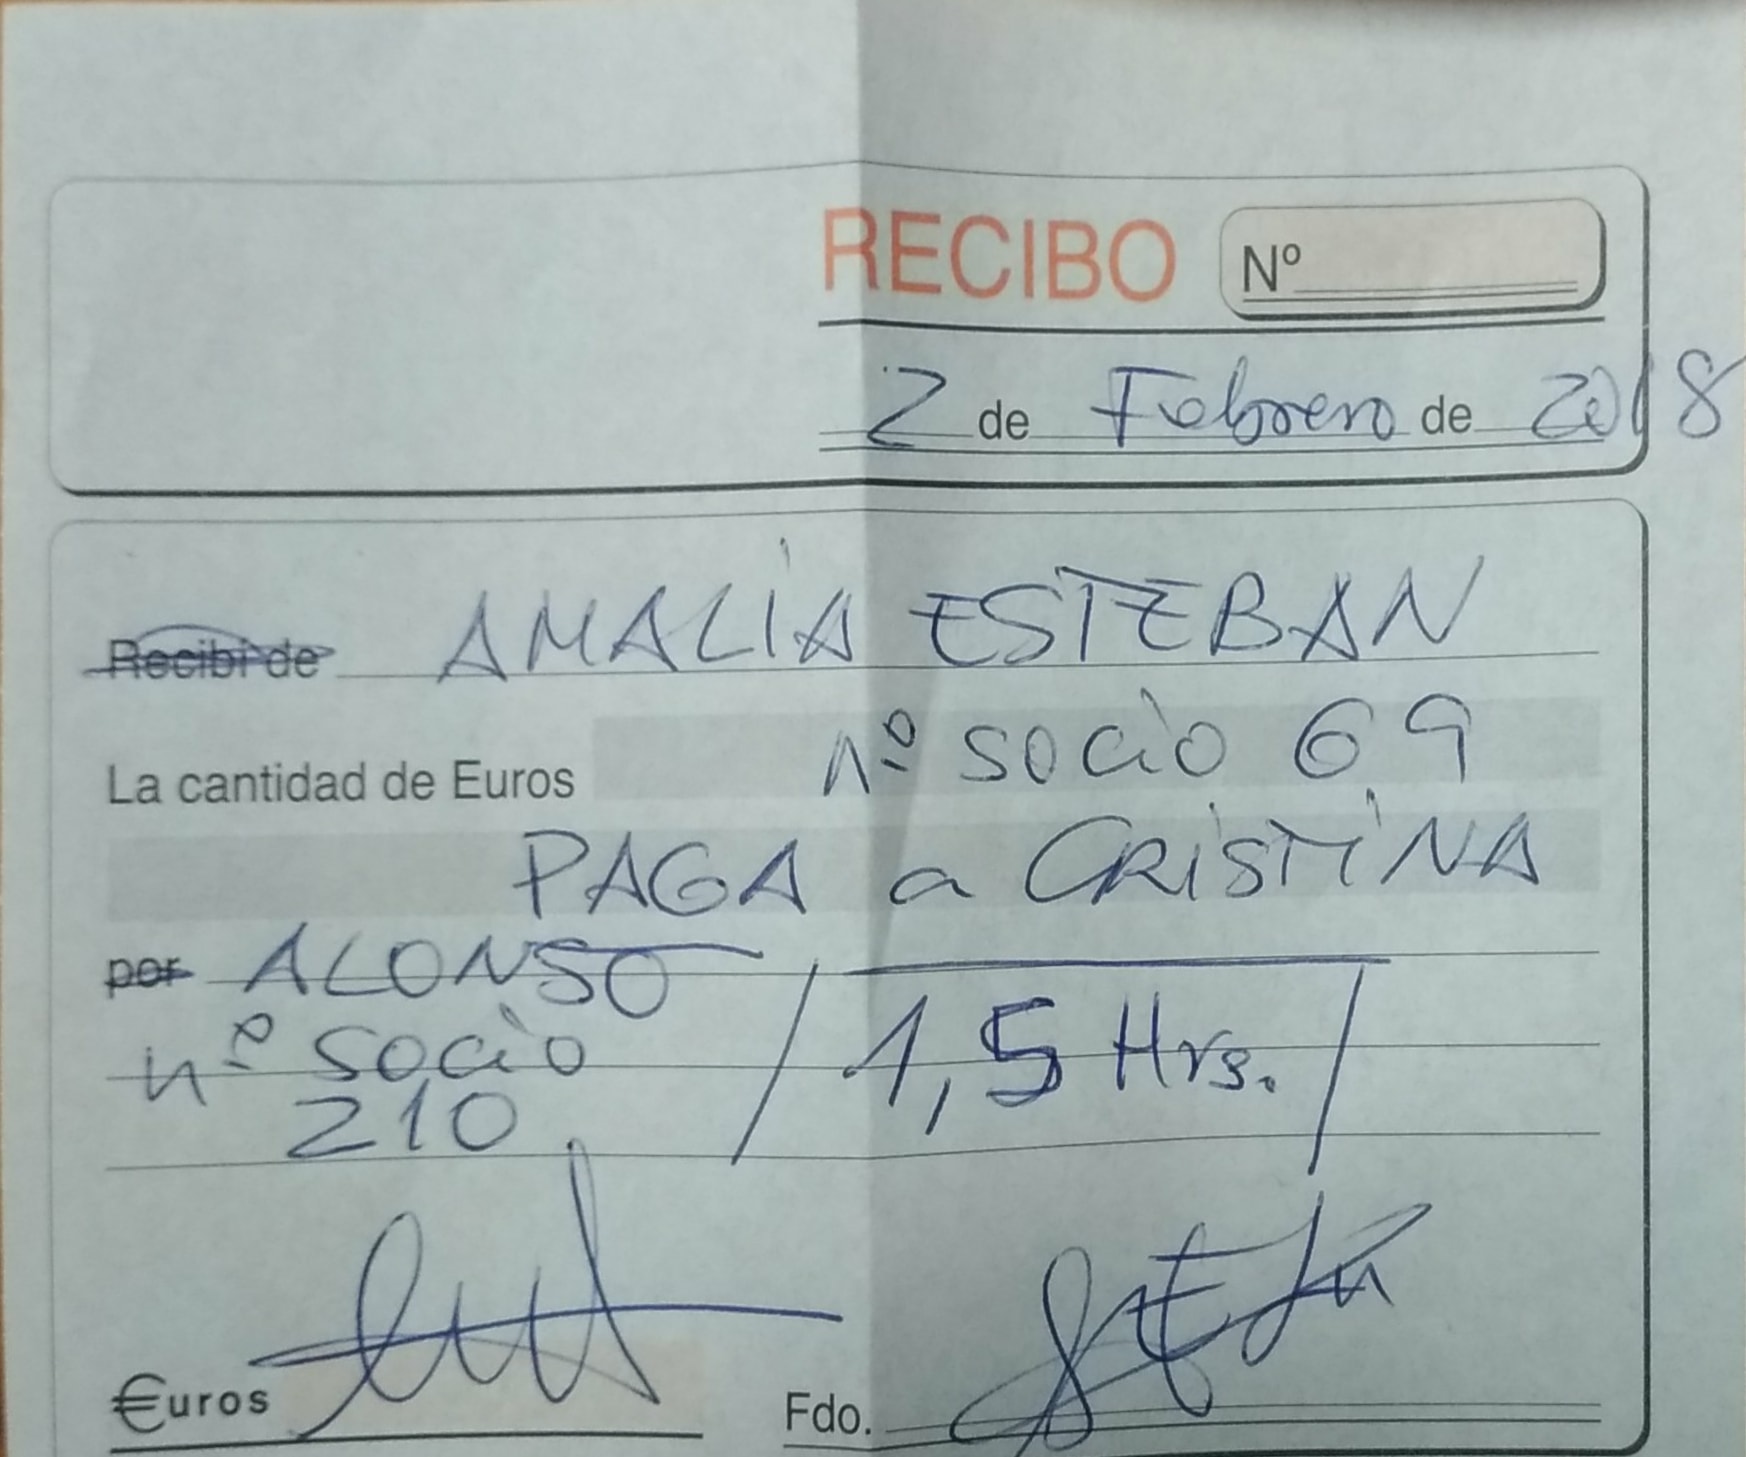 RECIBO Nº
2 de Febrero de 2018
Recibí de AMALIA ESTEBAN
La cantidad de Euros nº socio 69
PAGA a CRISTINA
por ALONSO
nº socio / 1,5 Hrs. /
210
€uros Fdo.